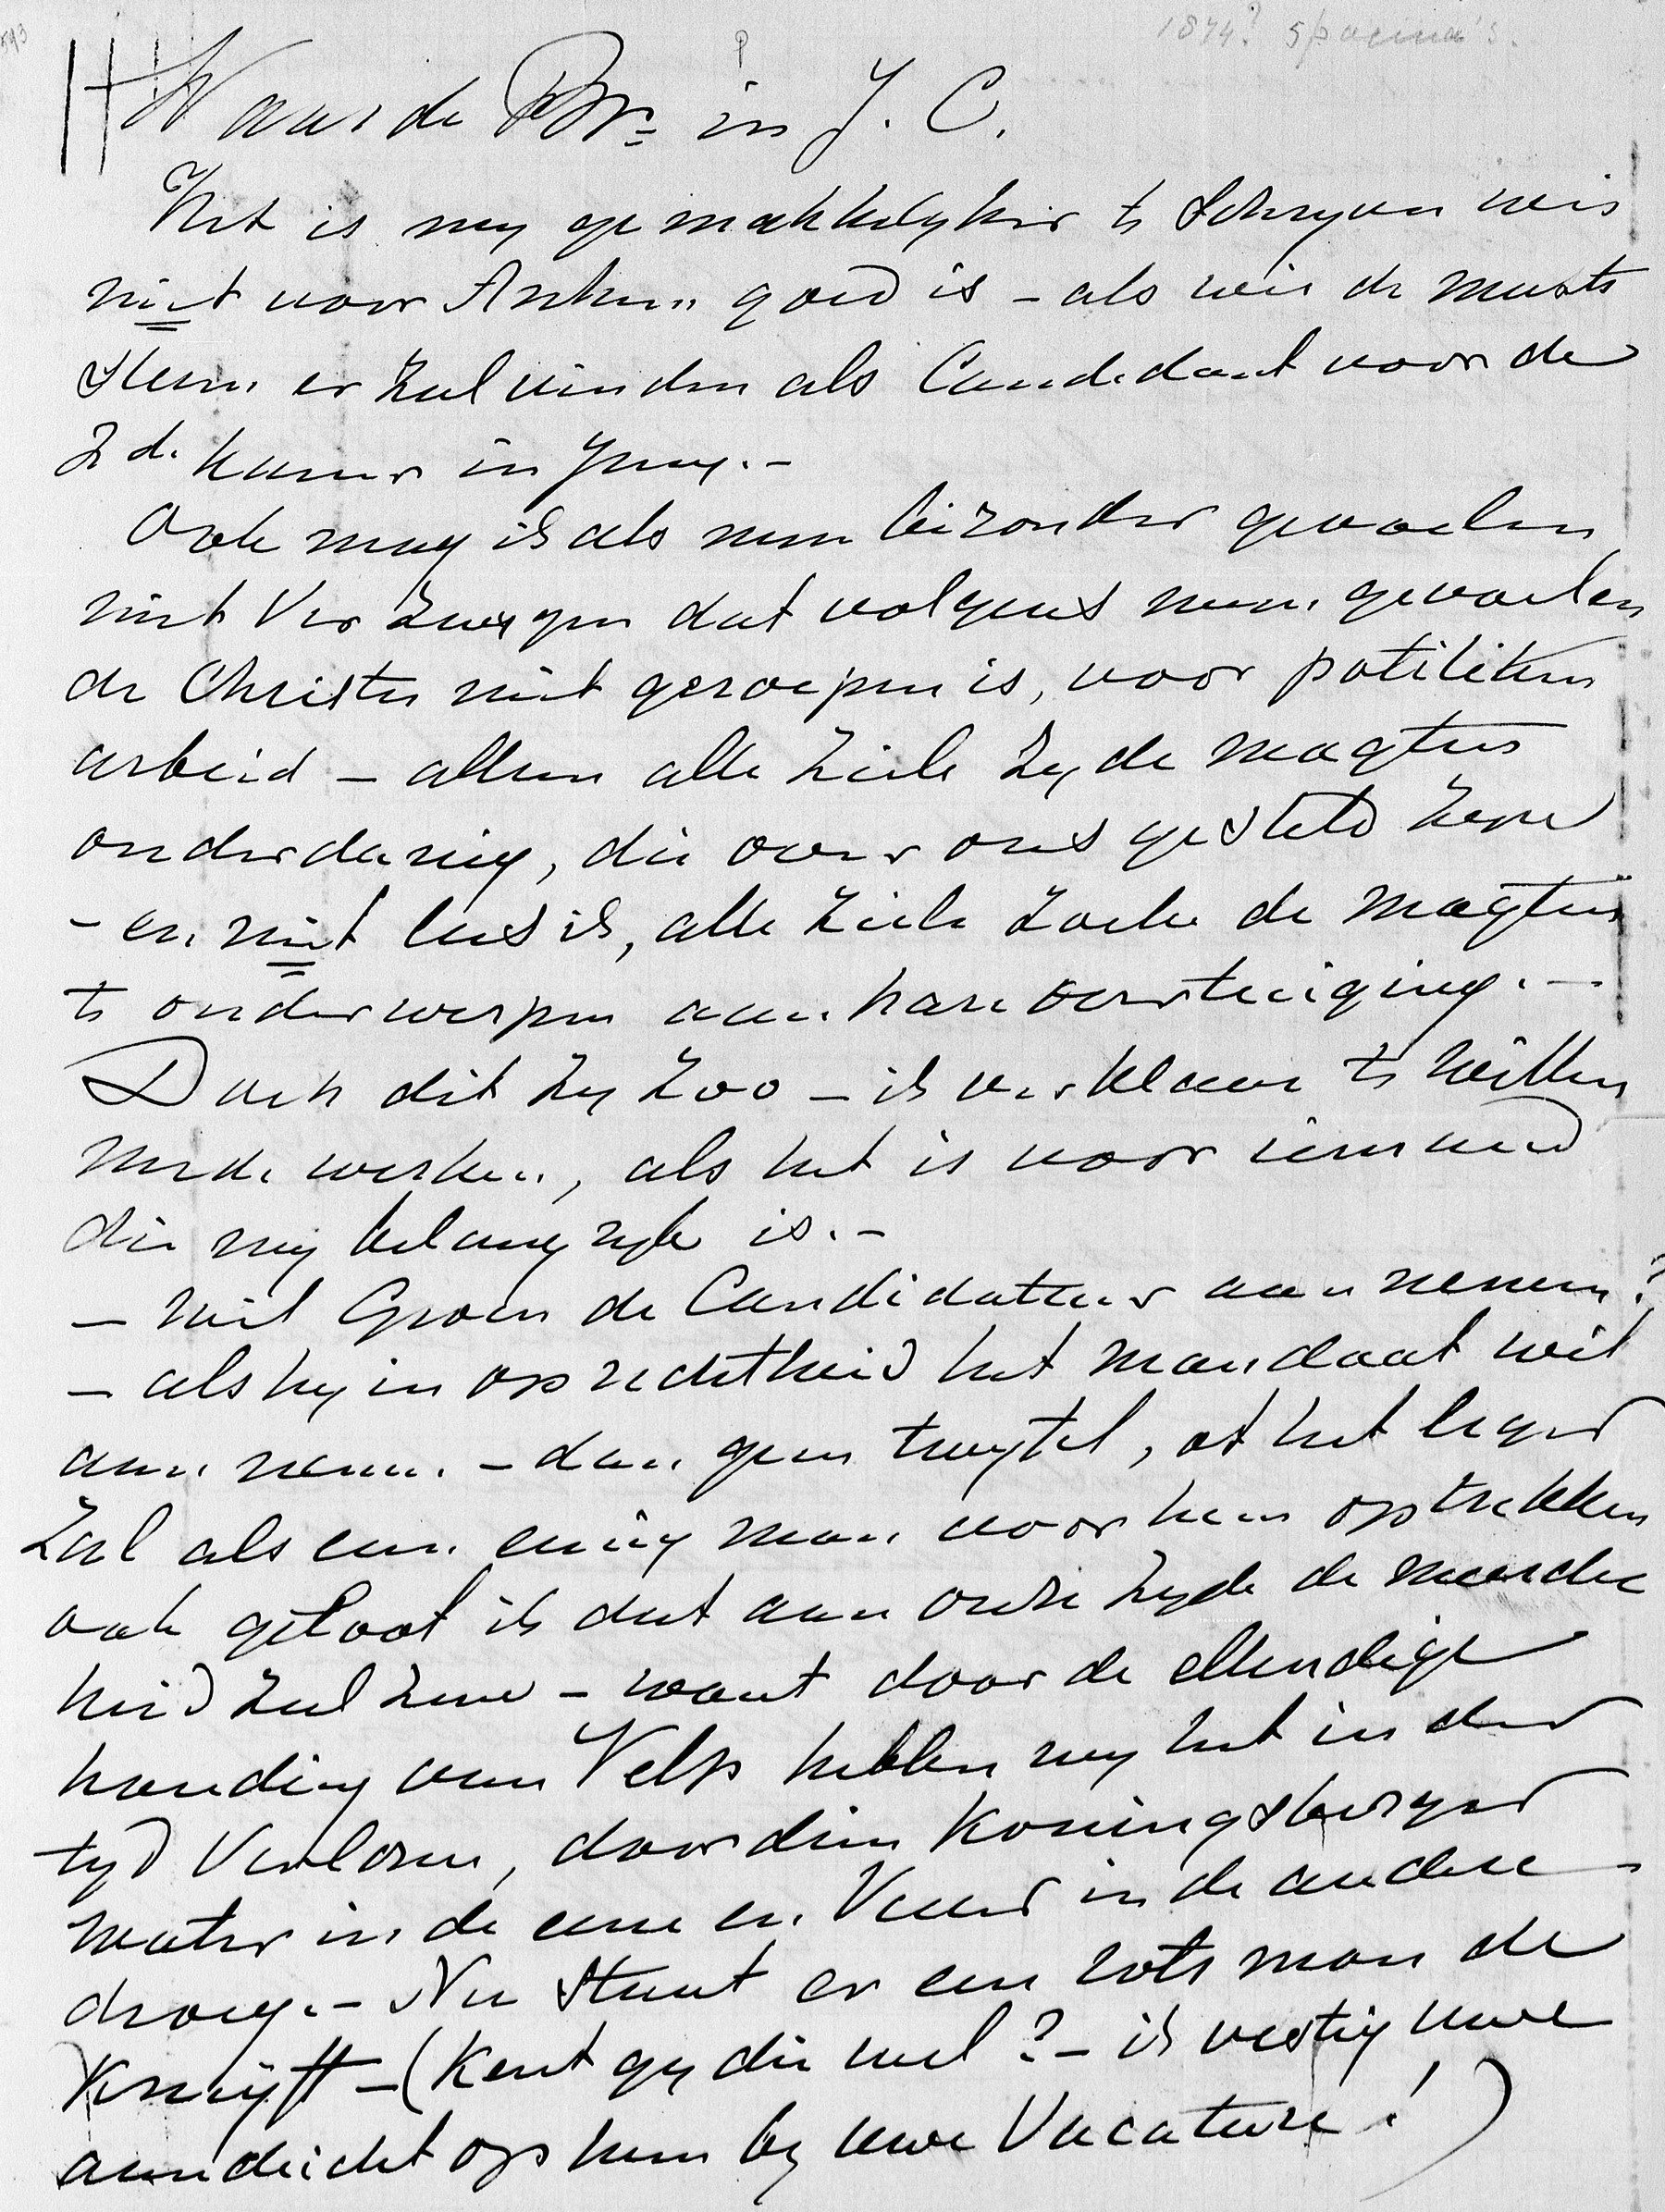 1874? 5 pagina's.
Waarde Br. in J. C.
Het is my gemakkelyker te schryven wie
niet voor Arnhem goed is – als wie de meeste
stemmen er zal vinden als Candidaat voor de
2de kamer in Juny. –
Ook mag ik als myn bizonder gevoelen
niet verzwygen dat volgens myn gevoelen
de Christen niet geroepen is, voor politieken
arbeid – alleen alle Ziele zy de magten
onderdanig, die over ons gesteld zyn
– en niet lees ik, alle Ziele zoeke de magten
te onderwerpen aan hare overtuiging. –
Doch dit zy zoo – ik verklaar te willen
mede werken, als het is voor iemand
die my belangryk is. –
– wil Groen de Candidatuur aannemen?
– als hy in oprechtheid het mandaat wil
aannemen. – dan geen twyfel, of het leger
zal als een eenig man voor hem optrekken
ook geloof ik dat aan onze zyde de meerder
heid zal zyn – want door de ellendige
houding van Velp hebben wy het in der
tyd verloren, door dien Koningsberger
water in de eene en Vuur in de andere
droeg. – Nu staat er een rots man de
Kruyff – (Kent gy die wel? – ik vestig uwe
aandacht op hem by uwe Vacature!)